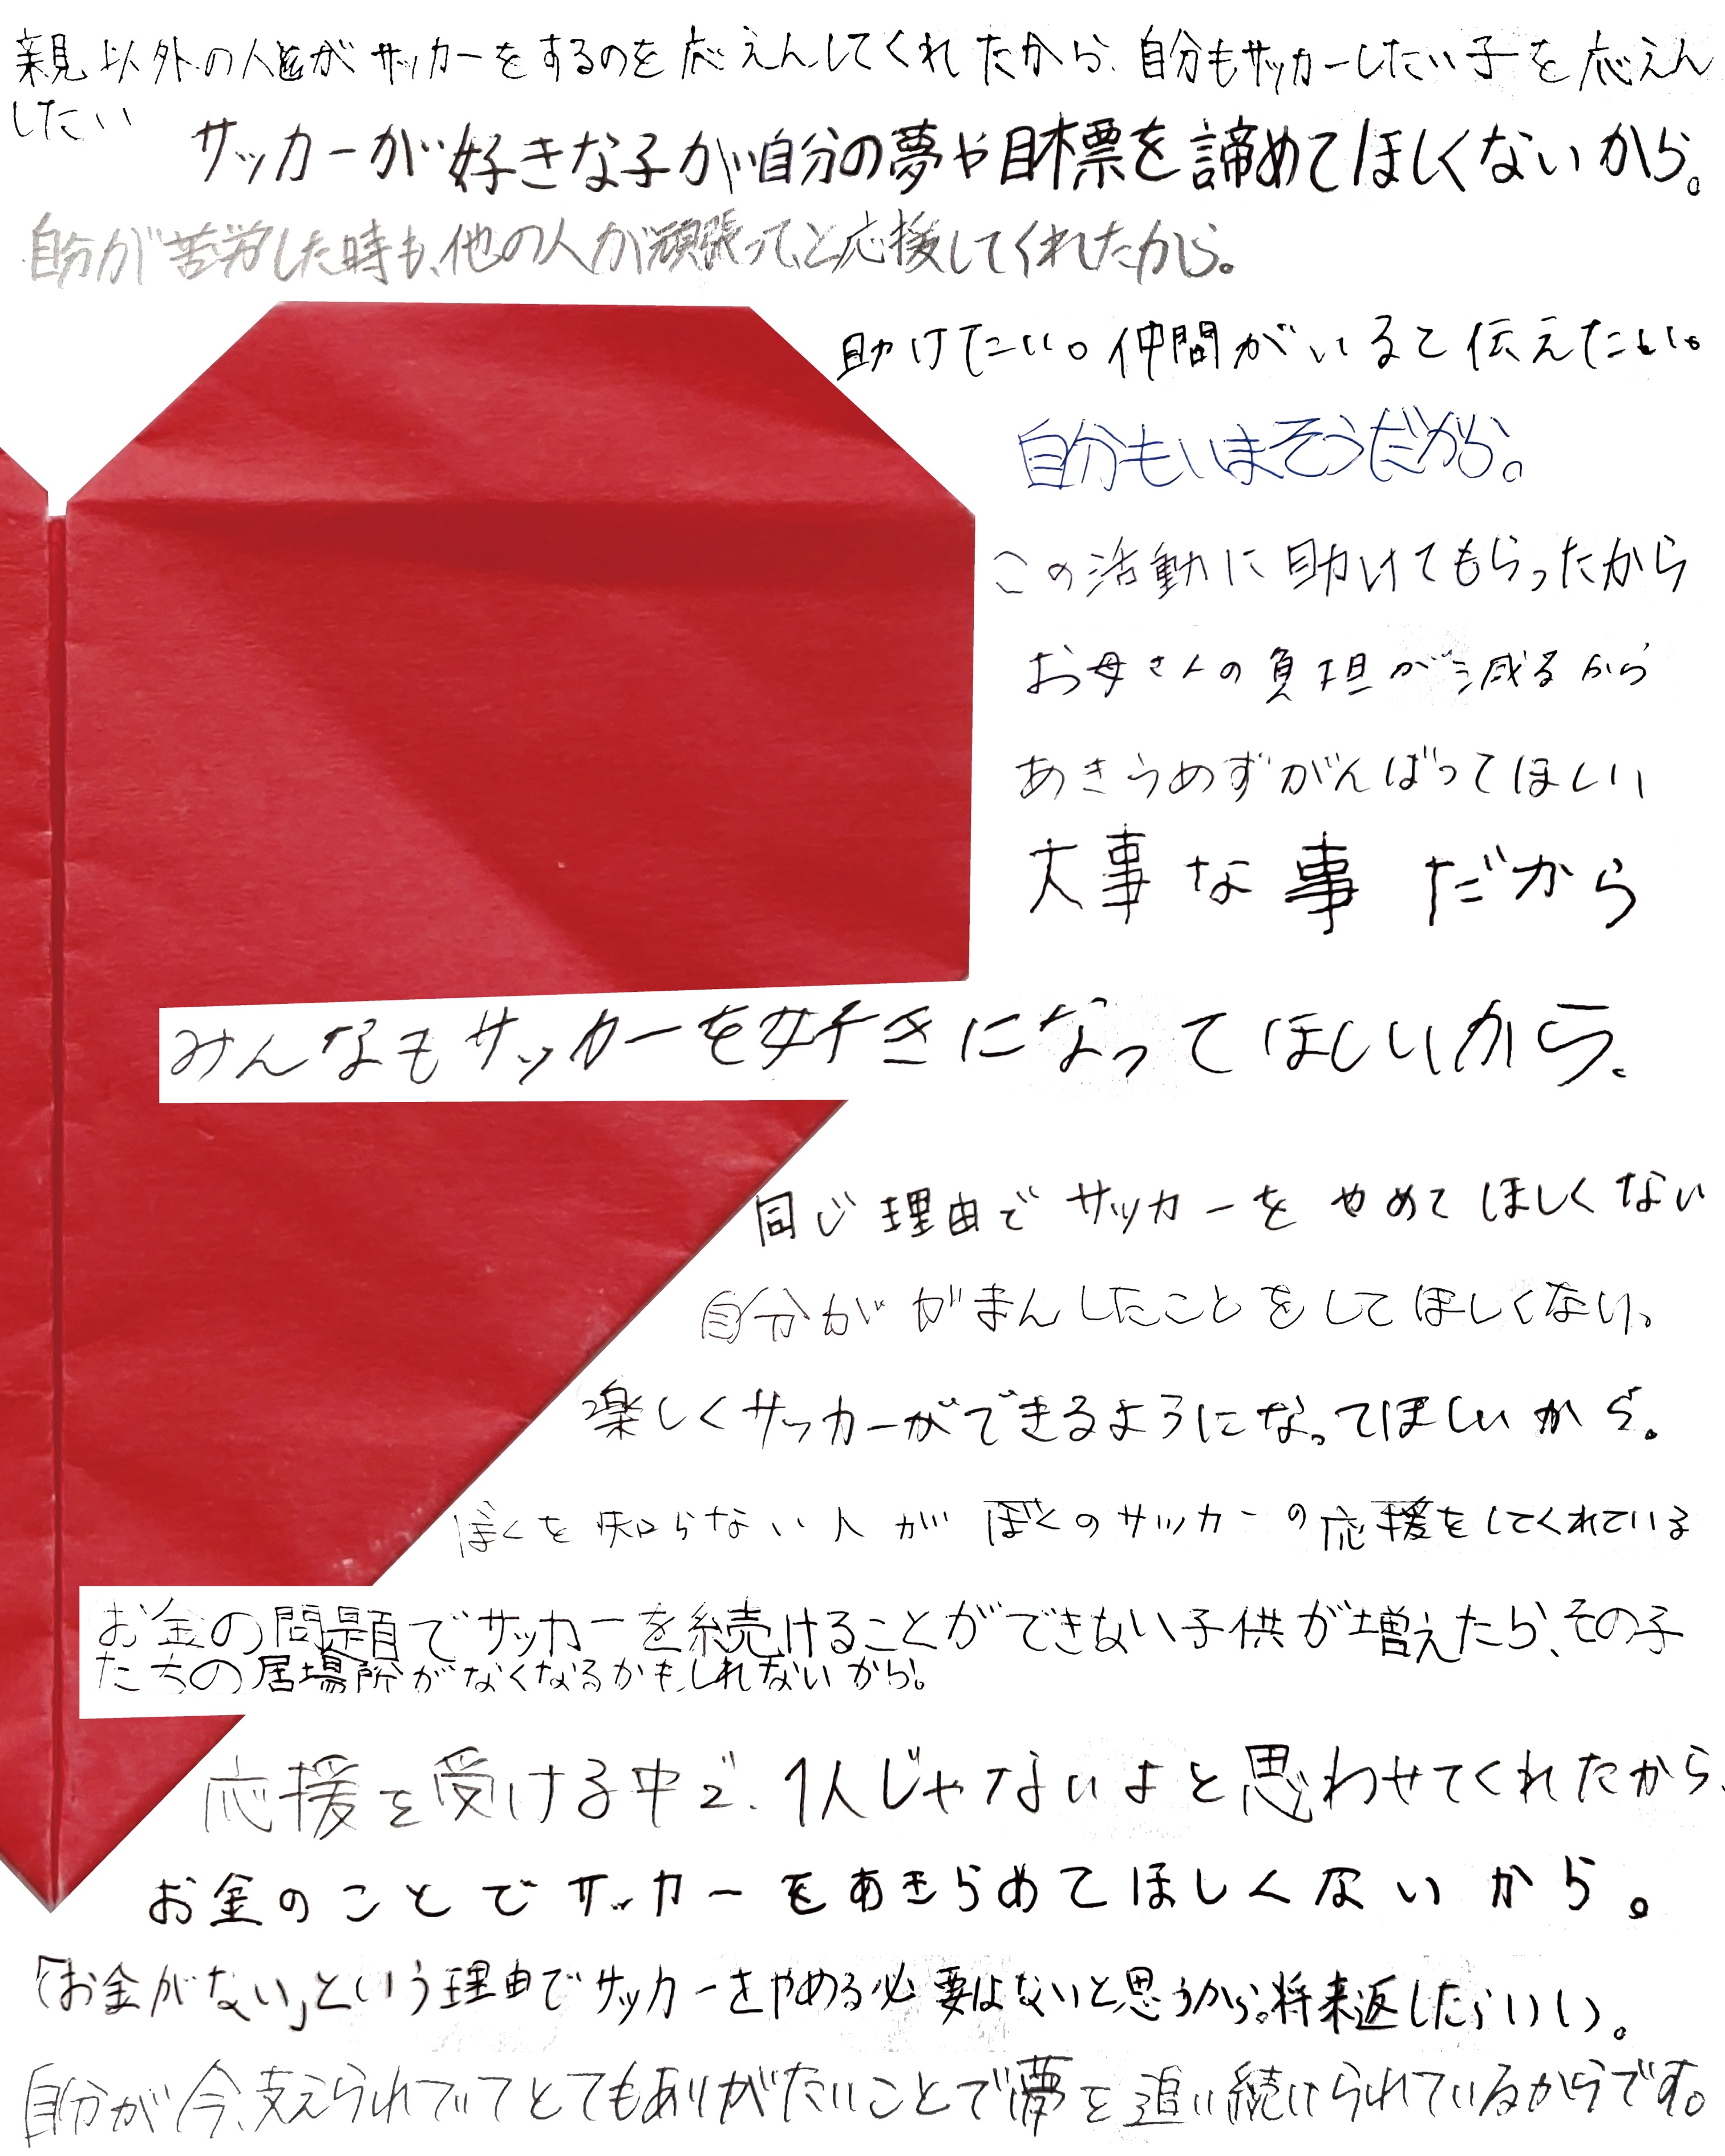 親以外の人がサッカーをするのを応えんしてくれたから、自分もサッカーしたい子を応えん
したい
サッカーが好きな子が自分の夢や目標を諦めてほしくないから。
自分が苦労した時も、他の人が頑張って、と応援してくれたから。
助けたい。仲間がいると伝えたい。
自分もいまそうだから。
この活動に助けてもらったから
お母さんの負担が減るから
あきらめずがんばってほしい
大事な事だから
みんなもサッカーを好きになってほしいから。
同じ理由でサッカーをやめてほしくない
自分ががまんしたことをしてほしくない。
楽しくサッカーができるようになってほしいから。
ぼくを知らない人がぼくのサッカーの応援をしてくれている
お金の問題でサッカーを続けることができない子供が増えたら、その子
たちの居場所がなくなるかもしれないから。
応援を受ける中で、1人じゃないよと思わせてくれたから、
お金のことでサッカーをあきらめてほしくないから。
「お金がない」という理由でサッカーをやめる必要はないと思うから。将来返したらいい。
自分が今、支えられてとてもありがたいことで夢を追い続けられているからです。